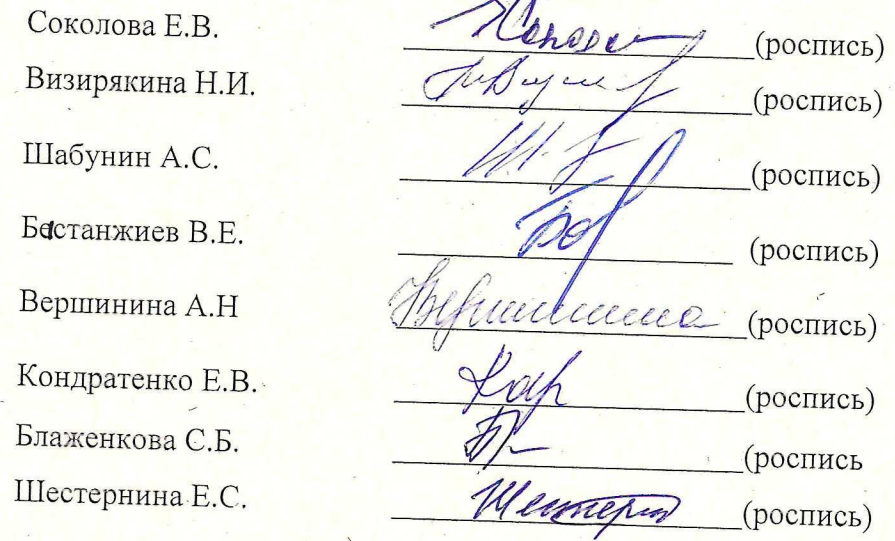 Соколова Е.В. (роспись)
Визирякина Н.И. (роспись)
Шабунин А.С. (роспись)
Бастанжиев В.Е. (роспись)
Вершинина А.Н Вершинина (роспись)
Кондратенко Е.В. (роспись)
Блаженкова С.Б. (роспись
Шестернина Е.С. (роспись)